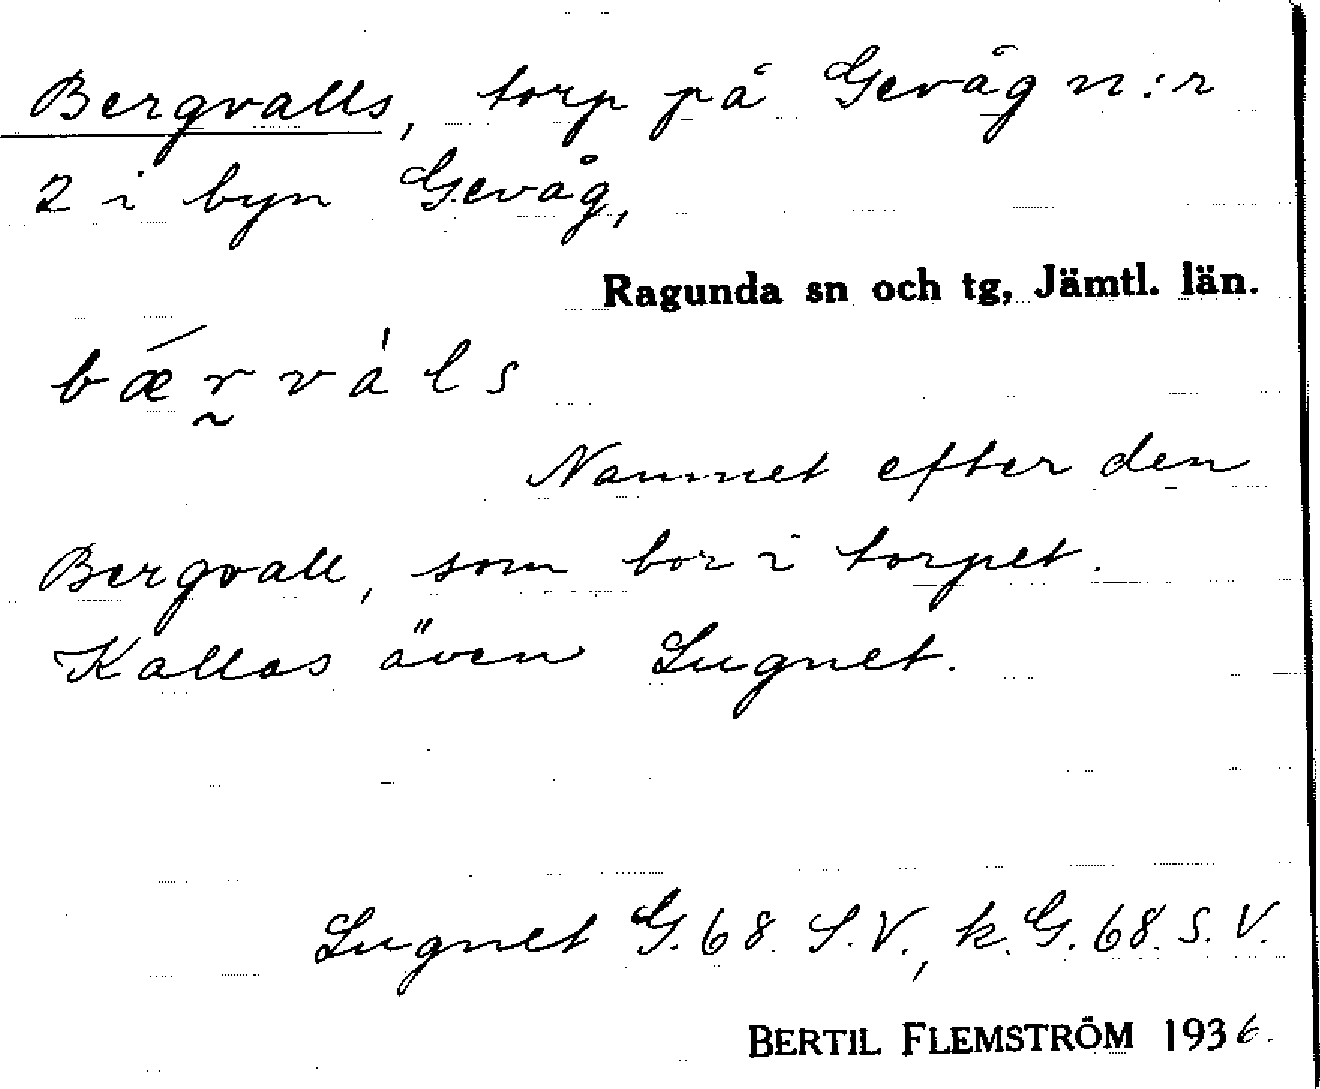 Bergvalls, torp på Gevåg n:r
2 i byn Gevåg,
Ragunda sn och tg, Jämtl. län.
bǽr̰vàls
Namnet efter den
Bergvall, som bor i torpet.
Kallas även Lugnet.
Lugnet G. 68 S.V., k. G. 68. S. V.
BERTIL FLEMSTRÖM 1936.